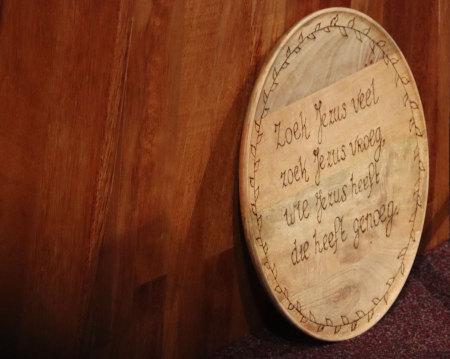 Zoek Jezus veel
zoek Jezus vroeg,
wie Jezus heeft
die heeft genoeg.